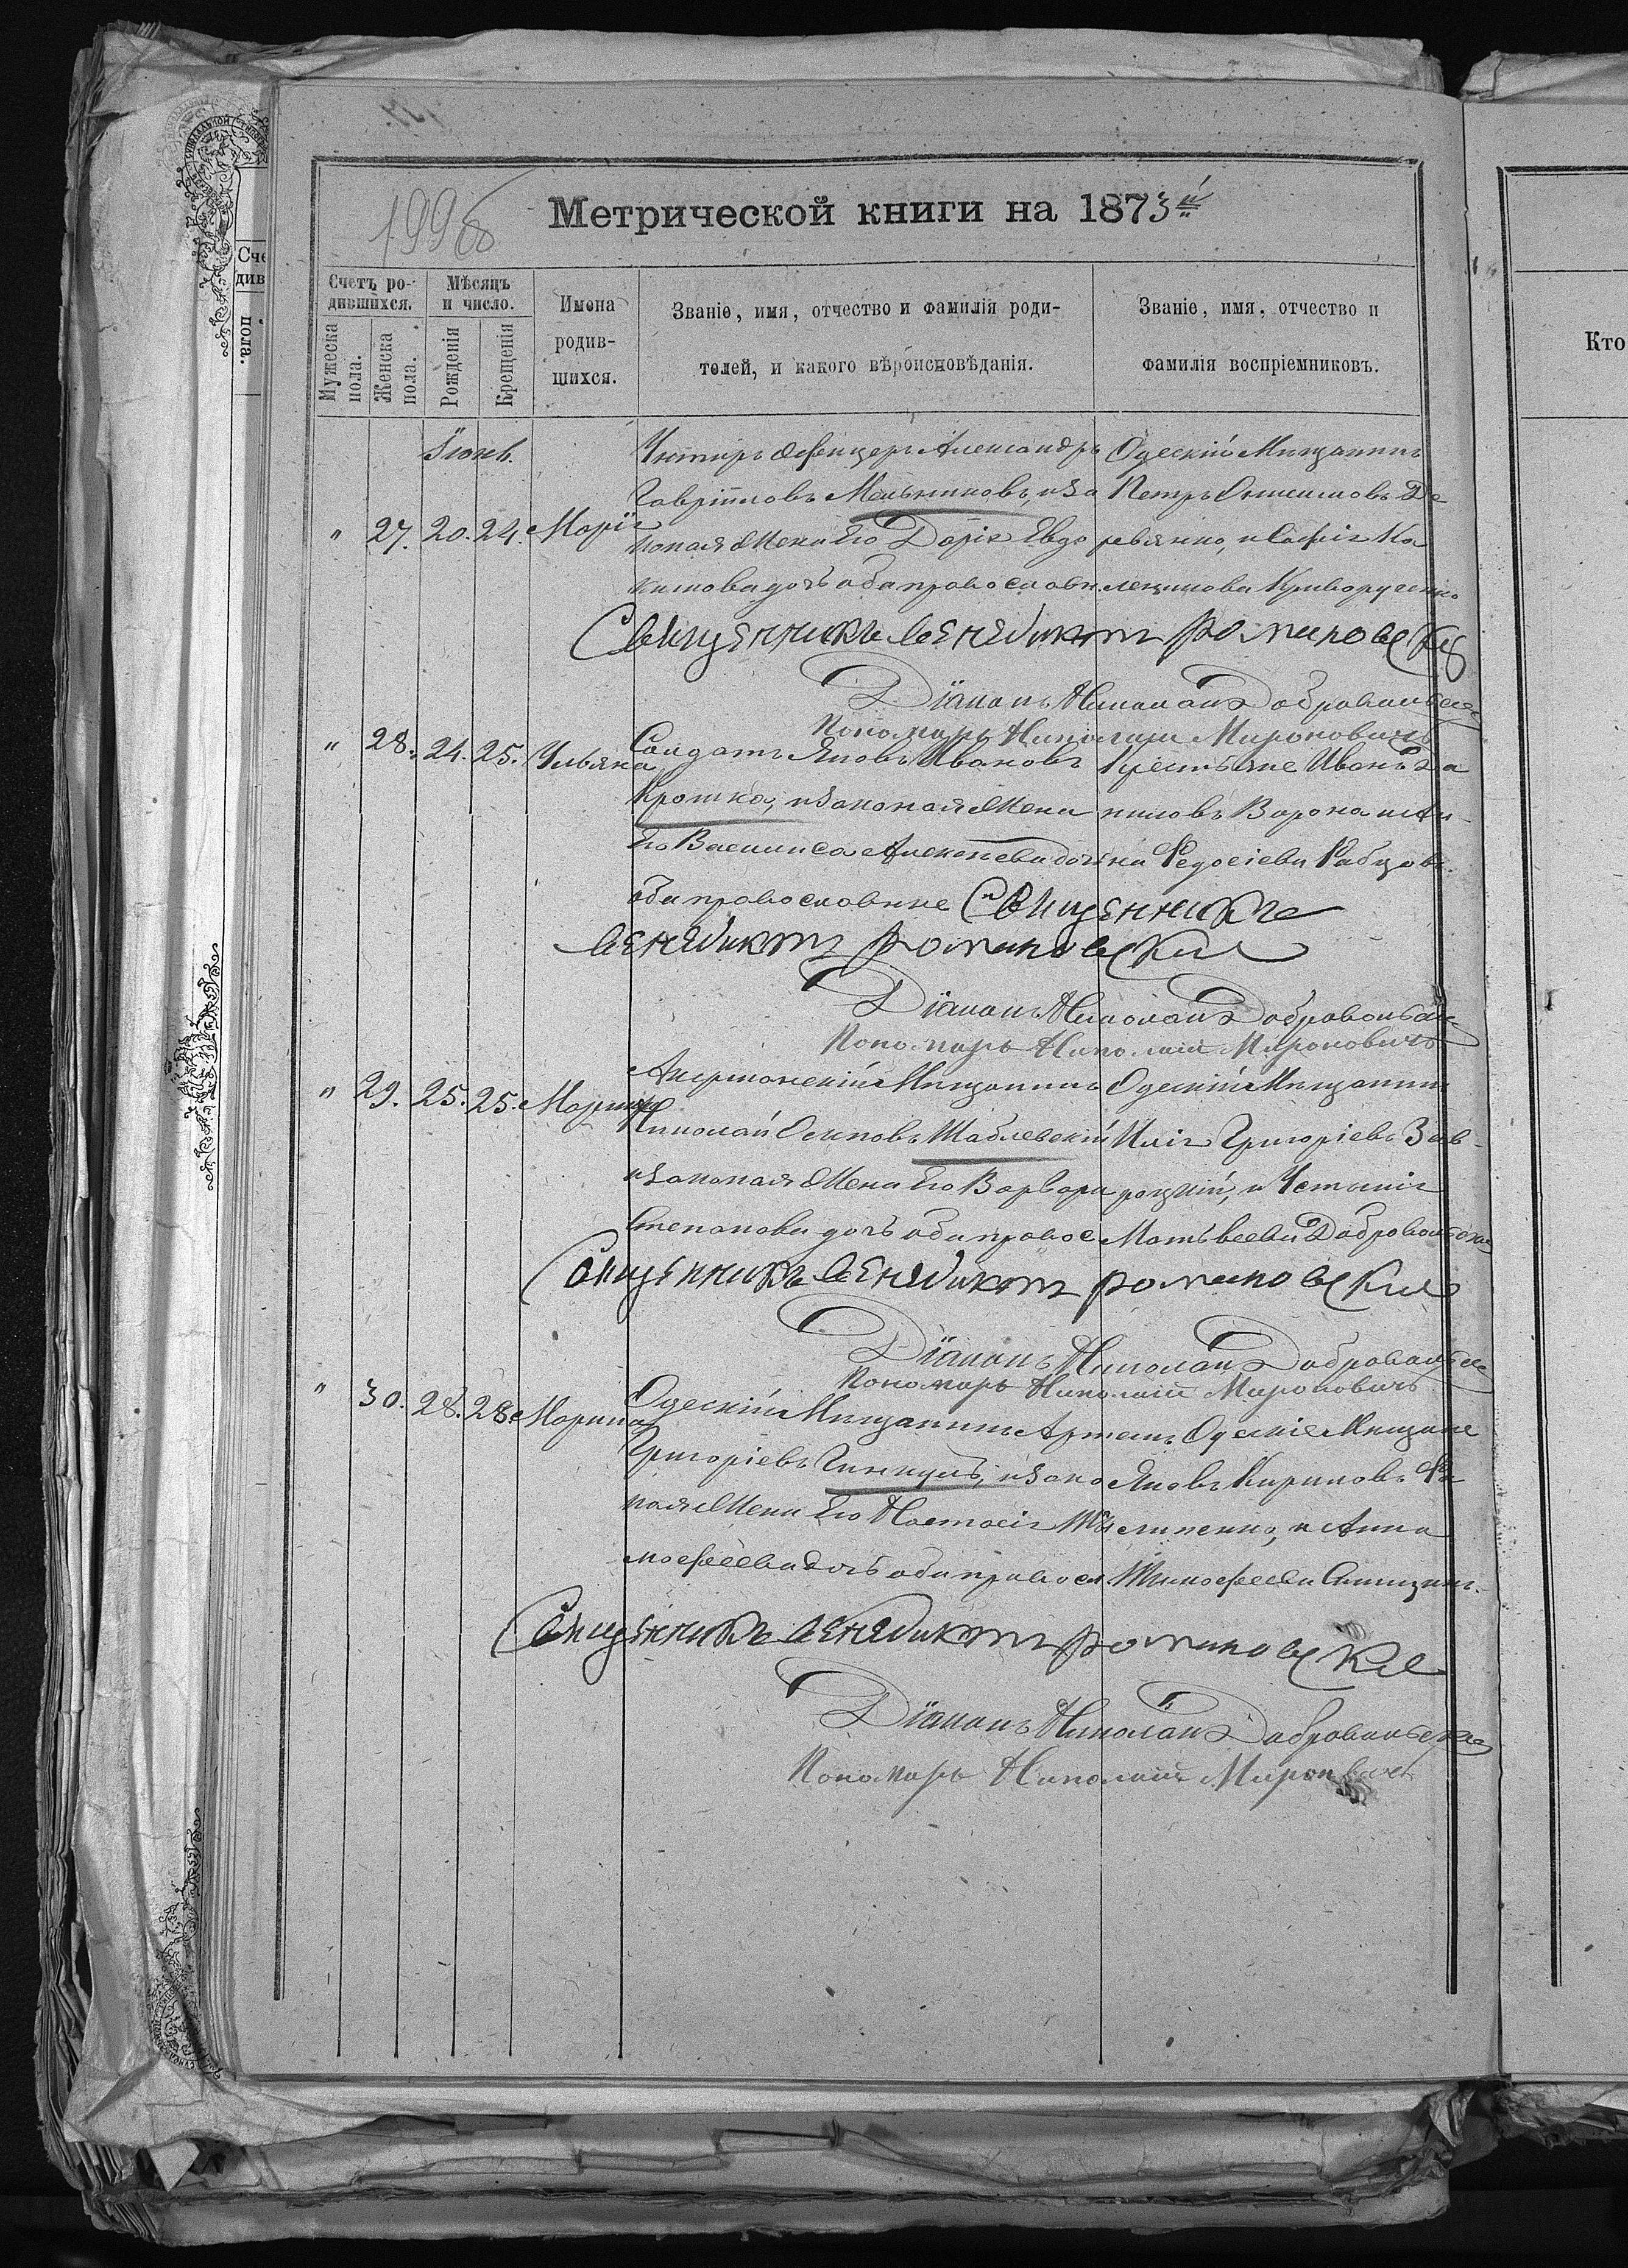 1996
Метрической книги на 1873й
Счетъ родившихся.
Мѣсяцъ и число.
Мужеска пола.
Женска пола.
Рожденія
Крещенія
Имена родив-
шихся.
Званіе, имя, отчество и фамилія роди-
телей, и какого вѣроисповѣданія.
Званіе, имя, отчество и
фамилія воспріемниковъ.
Кто
Іюнь.
" 27. 20. 24. Марія
Унтеръ офицеръ Александръ
Гавріиловъ и за
коная жена его Дарія Евдо
кимова дочь оба православн.
Одескій Мищанинъ
Петръ Онисимовъ Де
ревянко, и Софія Ка
Криворученко
Священникъ Венедиктъ Романовскій
Діаконъ Николай Добровольскій
Пономарь Николай Мироновичъ
" 28. 24. 25. Ульяна
Солдатъ Яковъ Ивановъ
Крошка, и законая жена
его Василиса Алексеева дочь
оба православные
Крестьяне Иванъ Да
ниловъ Ворона и Ан-
на Федосіева Рабцовъ.
Священникъ
Венедиктъ Романовскій
Діаконъ Николай Добровольскій
Пономарь Николай Мироновичъ
" 29. 25. 25. Марина
Акерманскій Мищанинъ
Николай Осиповъ Шаблевскій
и законая жена его Варвара
Степанова дочь оба правос
Одескій Мищанинъ
Илія Григоріевъ Зав-
роцкій, и Устинія
Матвеева Добровольская
Священникъ Венедиктъ Романовскій
Діаконъ Николай Добровольскій
Пономарь Николай Мироновичъ
" 30. 28. 28. Марина
Одескій Мищанинъ Артемъ
Григоріевъ и зако
ная жена его Настасія Ти
мофеева дочь оба правосл.
Одескіе Мищане
Яковъ Кириловъ Фи
липенко, и Анна
Тимофеева
Священникъ Венедиктъ Романовскій
Діаконъ Николай Добровольскій
Пономарь Николай Мироновичъ